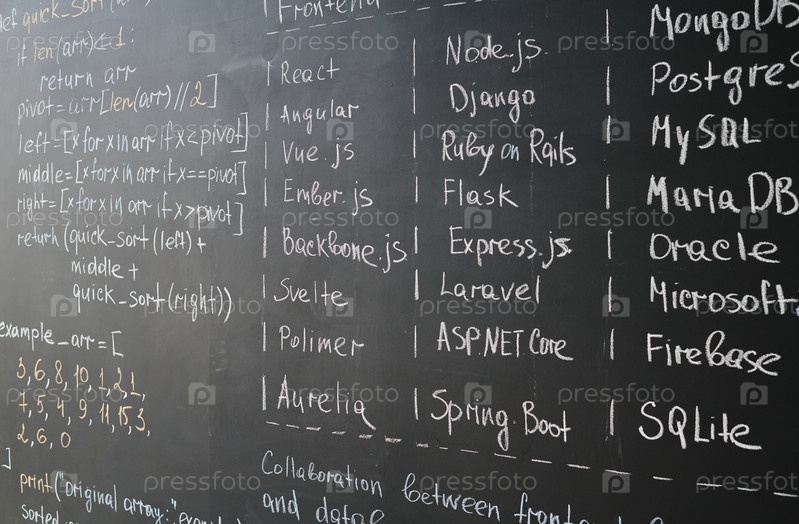 def quick_sort(
if len(arr)<=1:
return arr
pivot=arr[len(arr)//2]
left=[x for x in arr if x<pivot]
middle=[x for x in arr if x==pivot]
right=[x for x in arr if x>pivot]
return (quick_sort(left)+
middle+
quick_sort(right))
example_arr=[
3,6,8,10,1,2,1,
7,5,4,9,11,15,3,
2,6,0
]
print("original array:",
sorted
Frontend
| React
| Angular
| Vue.js
| Ember.js
| Backbone.js
| Svelte
| Polimer
| Aurelia
| Node.js.
| Django
| Ruby on Rails
| Flask
| Express.js
| Laravel
| ASP.NET Core
| Spring Boot
| MongoDB
| Postgres
| MySQL
| MariaDB
| Oracle
| Microsoft
| Firebase
| SQLite
Collaboration between fronten
and
pressfoto